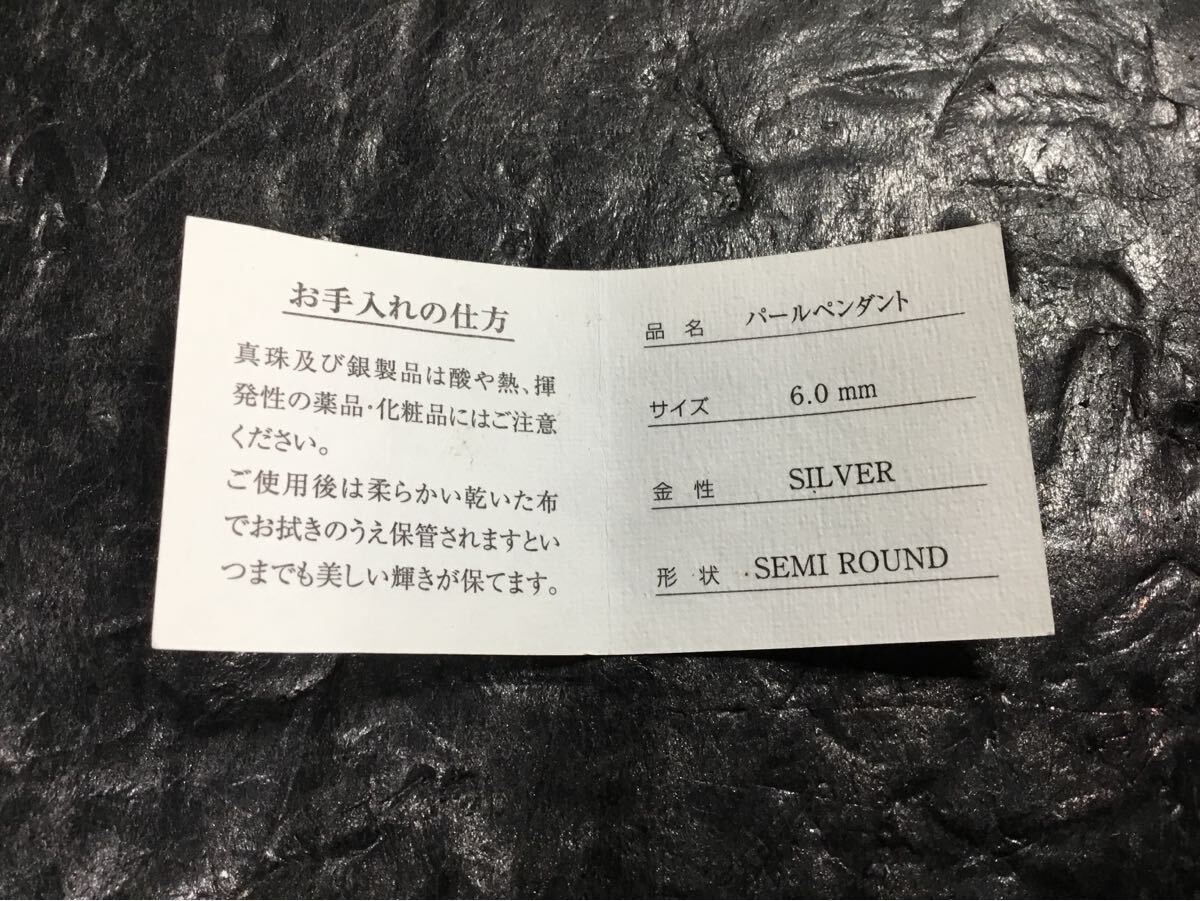 お手入れの仕方
真珠及び銀製品は酸や熱、揮
発性の薬品・化粧品にはご注意
ください。
ご使用後は柔らかい乾いた布
でお拭きのうえ保管されますとい
つまでも美しい輝きが保てます。
品名 パールペンダント
サイズ 6.0 mm
金性 SILVER
形状 SEMI ROUND